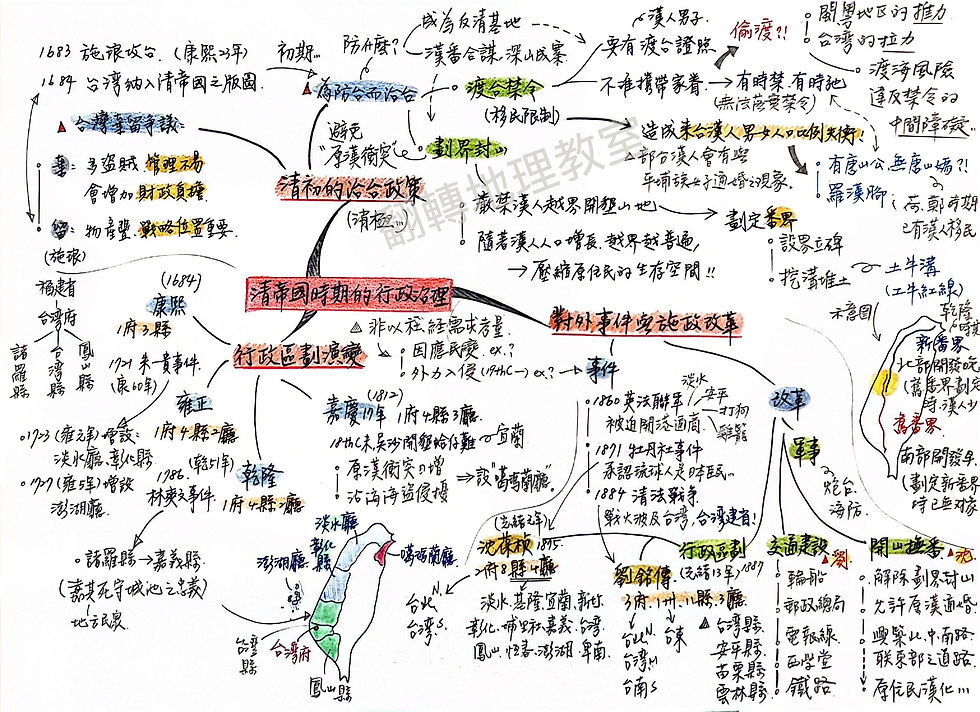 清帝國時期的行政治理
清初的治台政策
(消極…)
1683 施琅攻台. (康熙22年)
1684 台灣納入清帝國之版圖.
初期…
台灣棄留爭議:
棄: 多盜賊, 管理不易
會增加 財政負擔.
留: 物產豐, 戰略位置重要.
(施琅)
為防台而治台
防什麼?
成為反清基地
漢番合謀, 深山成寨
渡台禁令
(移民限制)
漢人男子
要有渡台證照
不准攜帶家眷
偷渡?!
閩粵地區的推力
台灣的拉力
渡海風險
違反禁令的
中間障礙.
有時禁, 有時弛
(無法落實禁令)
造成來台漢人男女人口比例失衡
部分漢人會有與
平埔族女子通婚之現象.
有唐山公, 無唐山媽?!
羅漢腳
荷、鄭時期
已有漢人移民
避免
"原漢衝突"
劃界封山
嚴禁漢人越界開墾山地
隨著漢人人口增長, 越界越普遍,
→ 壓縮原住民的生存空間!!
劃定番界
設界立碑
挖溝堆土
土牛溝
(土牛紅線)
示意圖
乾隆
新番界
北部開發晚
舊番界
南部開發早
(劃定新番界
行政區劃演變
非以稅經需求考量
因應民變. ex.?
外力入侵 (19thC—) ex.?
(1684)
康熙
1府3縣
福建省
台灣府
諸羅縣
台灣縣
鳳山縣
1721 朱一貴事件.
(康60年)
雍正
1府4縣2廳
1723 (雍元年) 增設:
淡水廳、彰化縣
1727 (雍5年) 增設
澎湖廳.
1786. (乾51年)
林爽文事件
乾隆
1府4縣3廳
諸羅縣→嘉義縣
(嘉其死守城池之忠義)
地方民家.
(1812)
嘉慶17年
1府4縣3廳.
18thC末吳沙開墾蛤仔難
宜蘭
原漢衝突日增
沿海海盜侵擾
→設"噶瑪蘭廳"
淡水廳
彰化縣
澎湖廳
噶瑪蘭廳
台灣縣
台灣府
鳳山縣
對外事件與施政改革
事件
1860 英法聯軍
被迫開港通商
淡水
安平
打狗
雞籠
1871 牡丹社事件
承認琉球人是日民…
1884 清法戰爭
戰火波及台灣, 台灣建省!
改革
軍事
砲台
海防.
行政區劃
(光緒元年)
沈葆楨 1875.
2府8縣4廳
台北N.
台灣S.
淡水、基隆、宜蘭、新竹
彰化、埔里社、嘉義、台灣
鳳山、恆春、澎湖、卑南
劉銘傳 (光緒13年) 1887
3府、1州、11縣、3廳.
台北N
台灣M
台南S
台東
台灣縣.
安平縣.
苗栗縣
雲林縣.
交通建設
劉
輪船
郵政總局
電報線
西學堂
鐵路
開山撫番
沈
解除劃界封山
允許原漢通婚.
興築北、中、南路.
聯東部之道路
原住民漢化…
翻轉地理教室